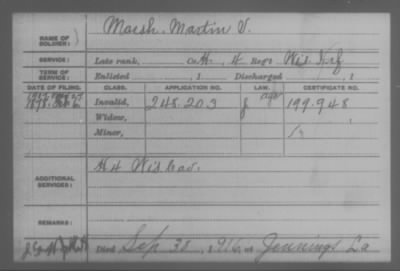 NAME OF SOLDIER: Marsh, Martin V.
SERVICE: Late rank, Co. H, 4 Reg't Wis Inf
TERM OF SERVICE: Enlisted , 1 Discharged , 1
DATE OF FILING. CLASS. APPLICATION NO. LAW. CERTIFICATE NO.
Invalid, 248.203 199.948
Widow,
Minor,
ADDITIONAL SERVICES: H 4 Wis Cav.
REMARKS:
Died Sep 30, 1916, at Jennings La